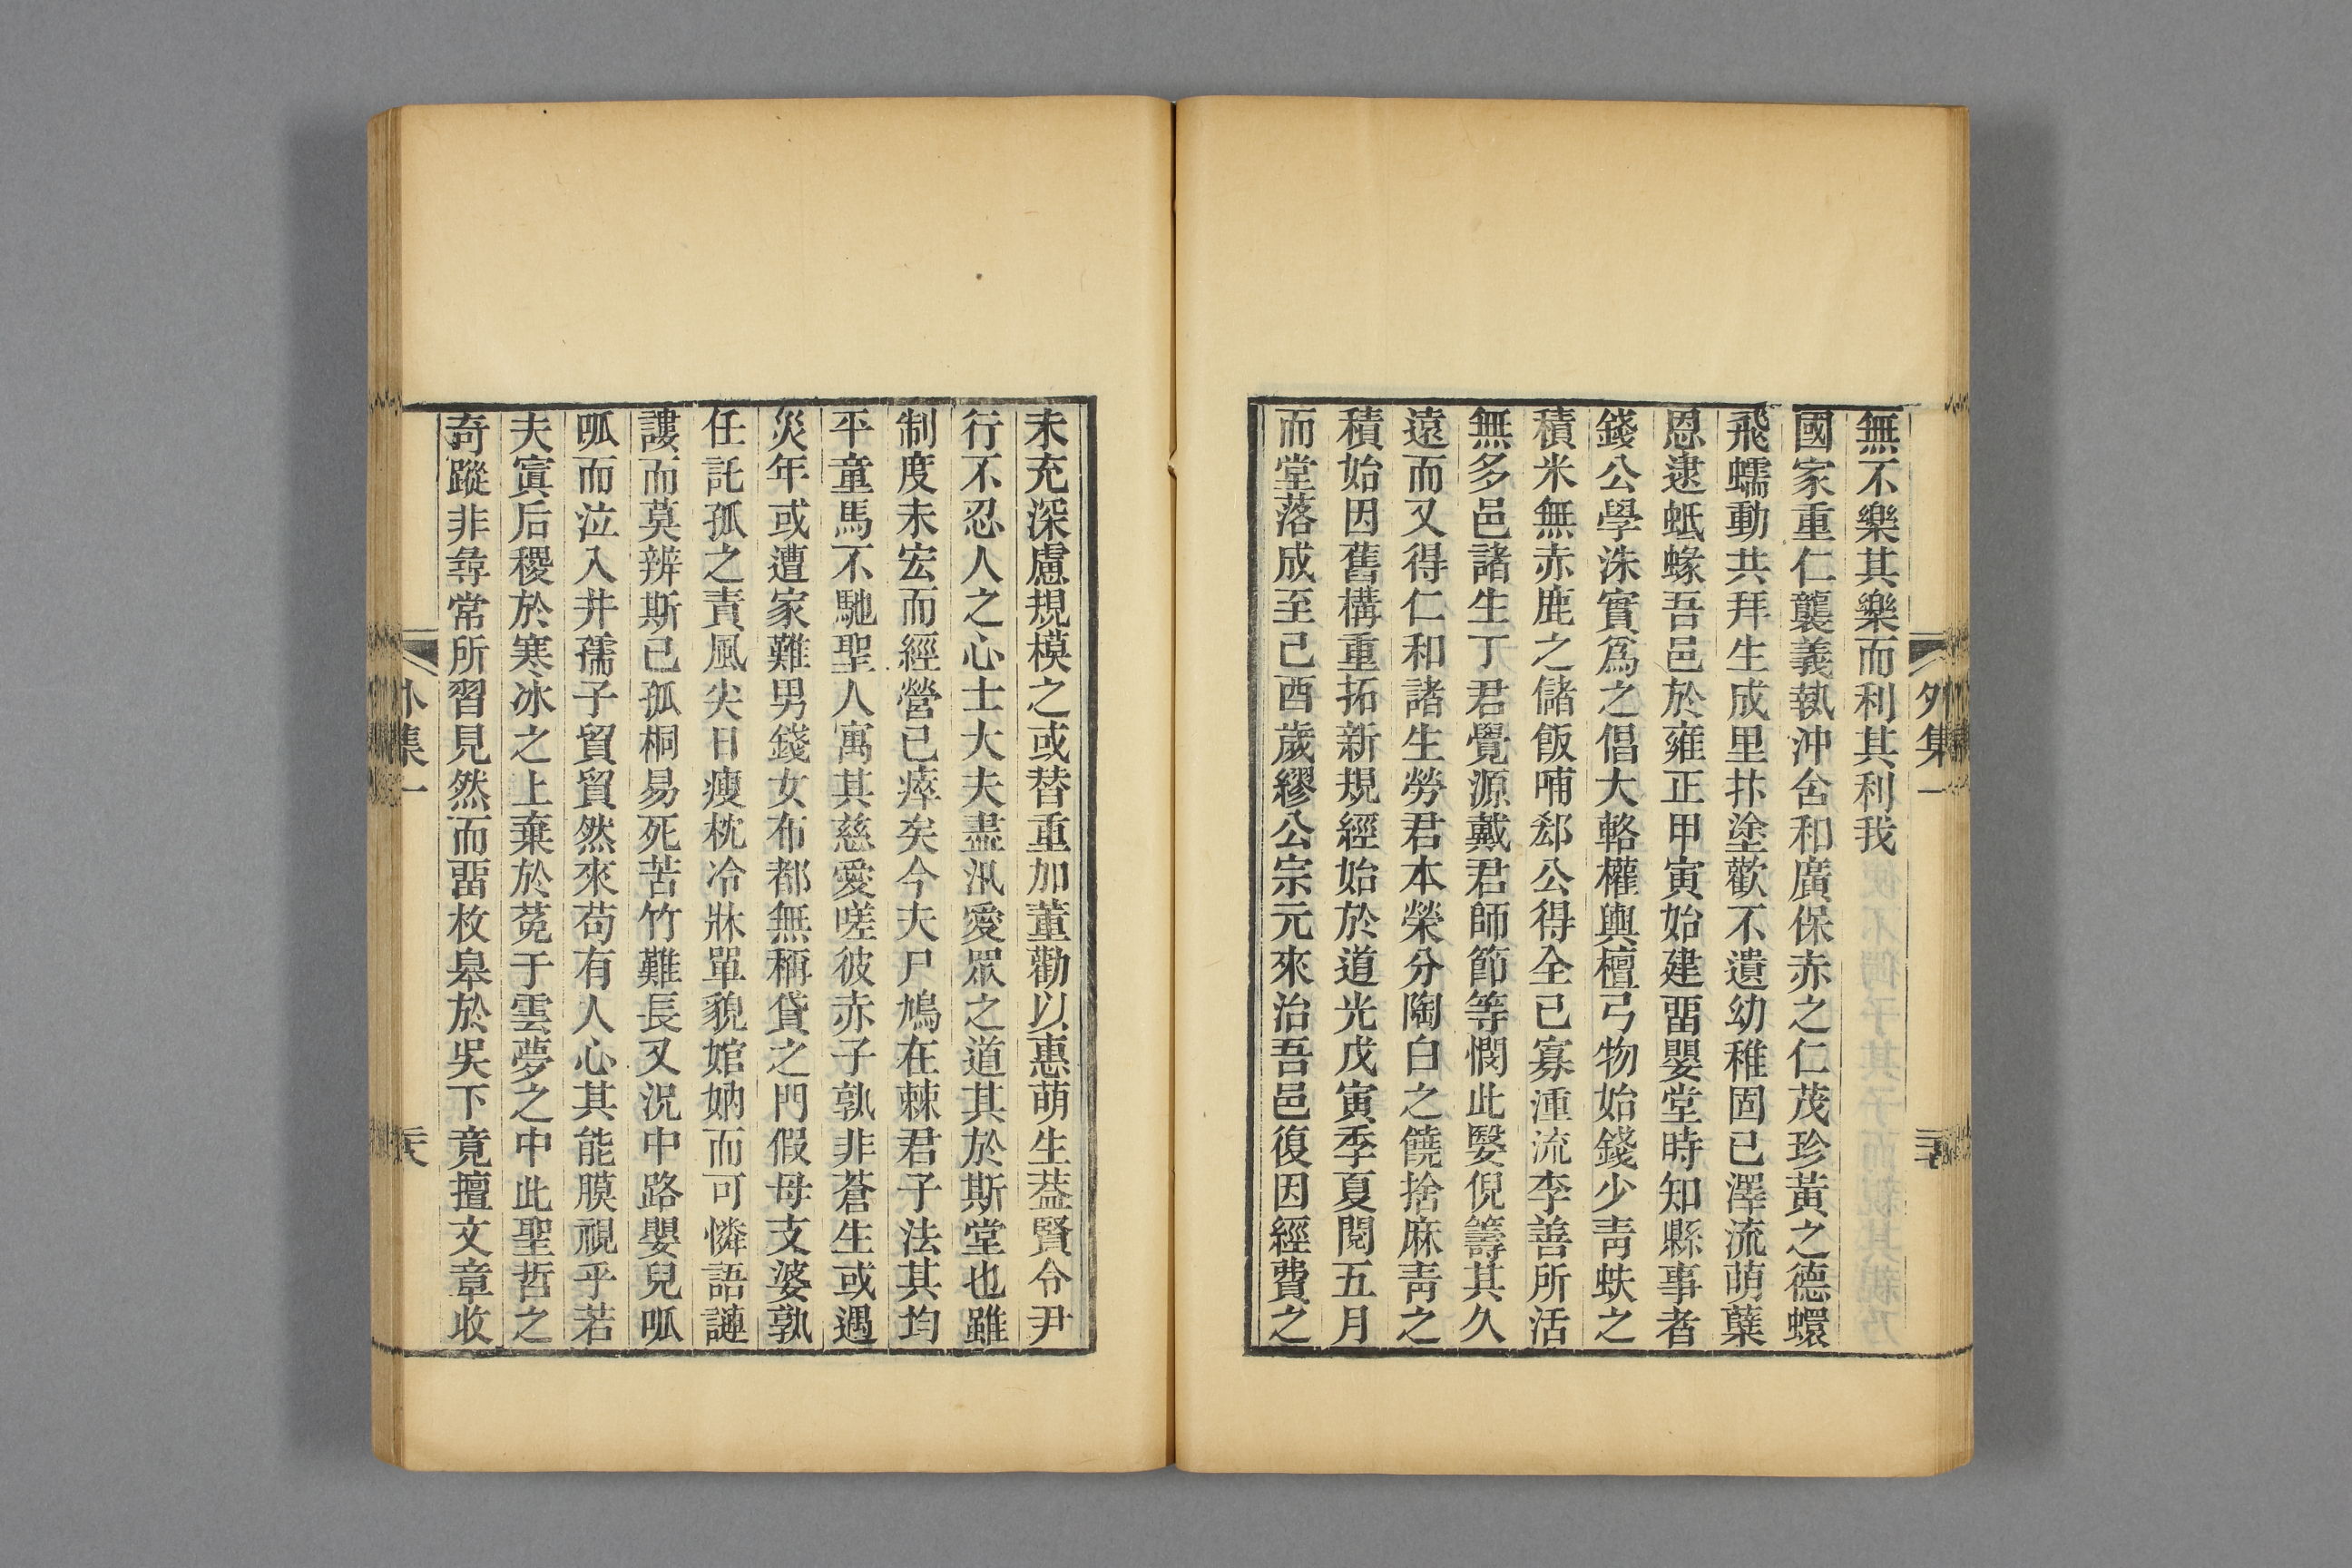 無不樂其樂而利其利我
國家重仁襲義執沖含和廣保赤之仁茂珍黃之德蠉
飛蠕動共拜生成里抃塗歡不遺幼稚固已澤流萌蘖
恩逮蚳蝝吾邑於雍正甲寅始建畱嬰堂時知縣事者
錢公學洙實爲之倡大輅權輿檀弓物始錢少靑蚨之
積米無赤鹿之儲飯哺郄公得全已寡湩流李善所活
無多邑諸生丁君覺源戴君師節等憫此嫛倪籌其久
遠而又得仁和諸生勞君本榮分陶白之饒捨麻靑之
積始因舊構重拓新規經始於道光戊寅季夏閱五月
而堂落成至己酉歲繆公宗元來治吾邑復因經費之
外集一
未充深慮規模之或替重加董勸以惠萌生葢賢令尹
行不忍人之心士大夫盡汎愛眾之道其於斯堂也雖
制度未宏而經營已瘁矣今夫尸鳩在棘君子法其均
平童馬不馳聖人寓其慈愛嗟彼赤子孰非蒼生或遇
災年或遭家難男錢女布都無稱貸之門假母支婆孰
任託孤之責風尖日瘦枕冷牀單貌婠妠而可憐語謰
謱而莫辨斯已孤桐易死苦竹難長又況中路嬰兒呱
呱而泣入井孺子貿貿然來苟有人心其能膜視乎若
夫寘后稷於寒冰之上棄於菟于雲夢之中此聖哲之
奇蹤非尋常所習見然而畱枚皋於吳下竟擅文章收
外集一